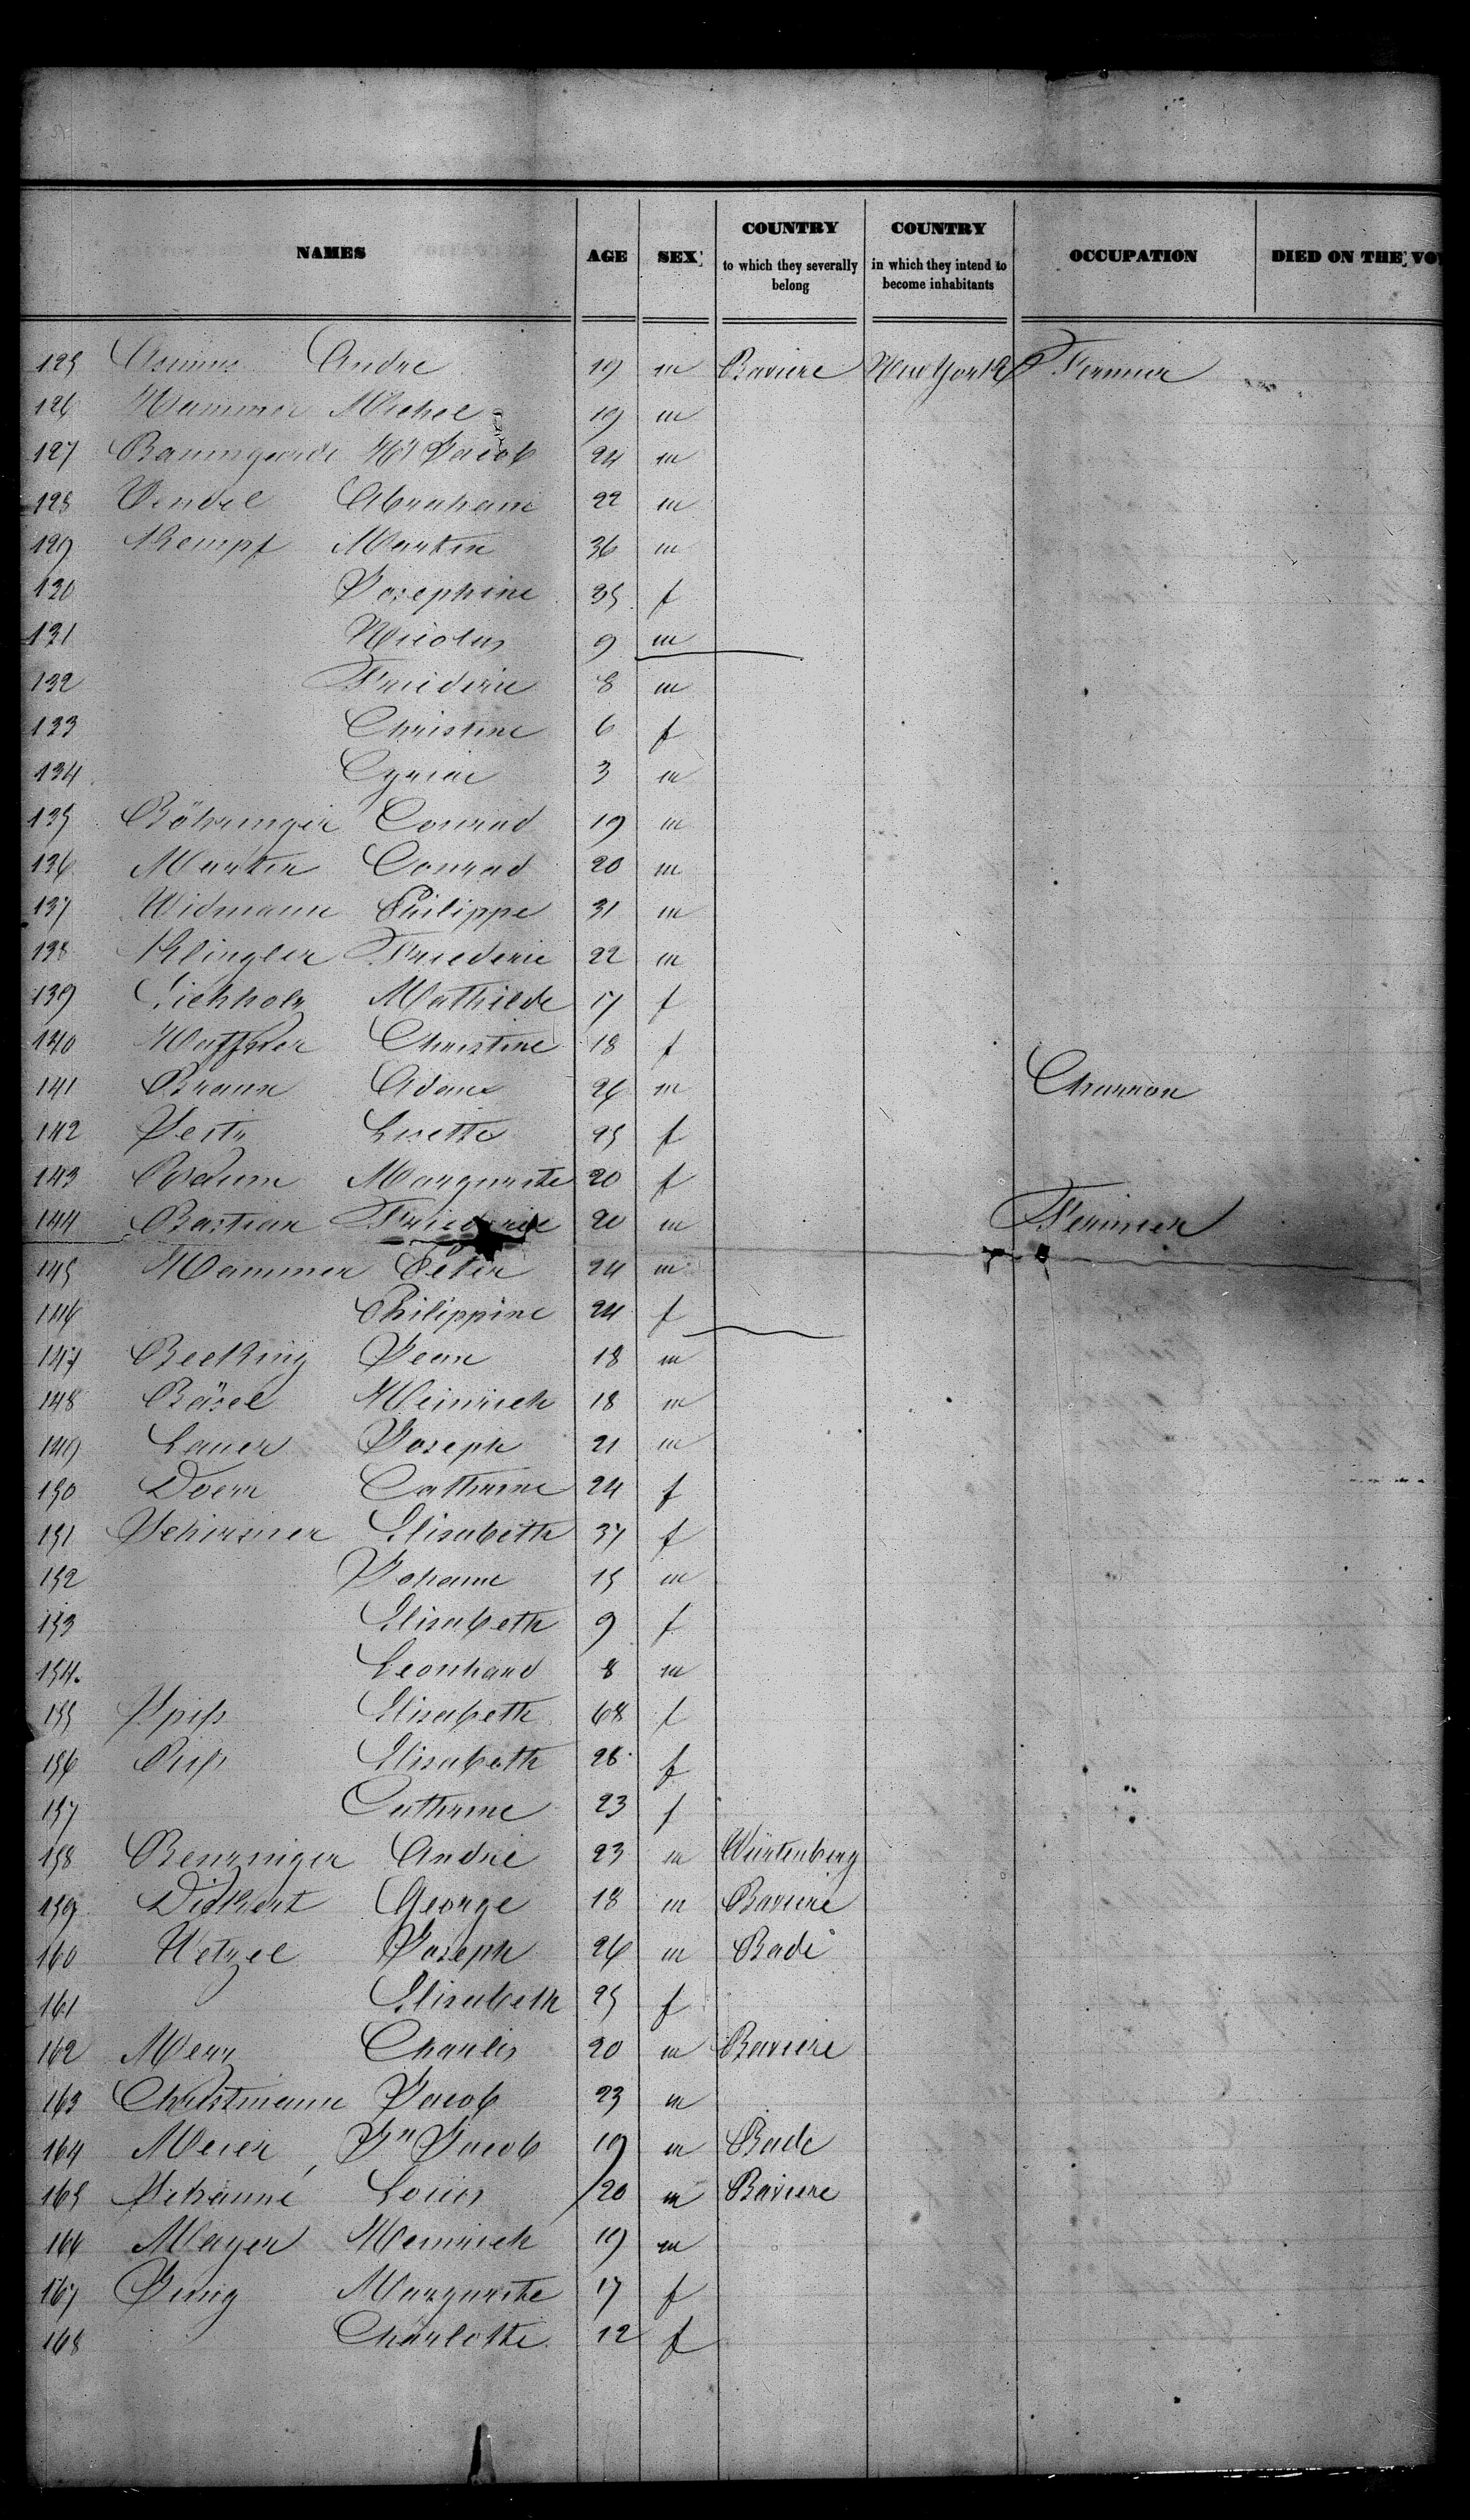 NAMES AGE SEX COUNTRY to which they severally belong COUNTRY in which they intend to become inhabitants OCCUPATION DIED ON THE VO
125 Asimus Andre 19 m Baviere New York Fermier
126 Hammer Michel 19 m
127 Jacob 24 m
128 Vendel Abraham 22 m
129 Kempf Martin 36 m
130 Josephine 35 f
131 Nicolas 9 m
132 Friederic 8 m
133 Christine 6 f
134 Cyriac 3 m
135 Böhringer Conrad 19 m
136 Martin Conrad 20 m
137 Widmann Philippe 31 m
138 Klingler Friederic 22 m
139 Eichholz Mathilde 17 f
140 Haffner Christine 18 f
141 Braun Adam 26 m Charron
142 Lisette 25 f
143 Marguerite 20 f
144 Bastian Friederic 20 m Fermier
145 Hammer Peter 24 m
146 Philippine 24 f
147 Becking Jean 18 m
148 Bäsel Heinrich 18 m
149 Lauer Joseph 21 m
150 Doerr Catherine 24 f
151 Schirmer Elisabeth 37 f
152 Johann 15 m
153 Elisabeth 9 f
154. Leonhard 8 m
155 Spiess Elisabeth 68 f
156 Elisabeth 28 f
157 Catherine 23 f
158 Benzinger André 23 m Würtenberg
159 Dickert George 18 m Baviere
160 Wetzel Joseph 26 m Bade
161 Elisabeth 25 f
162 Merz Charles 20 m Baviere
163 Christmann Jacob 23 m
164 Meier Jn Jacob 19 m Bade
165 Schanné Louis 20 m Baviere
166 Mayer Heinrich 19 m
167 Jung Marguerite 17 f
168 Charlotte 12 f